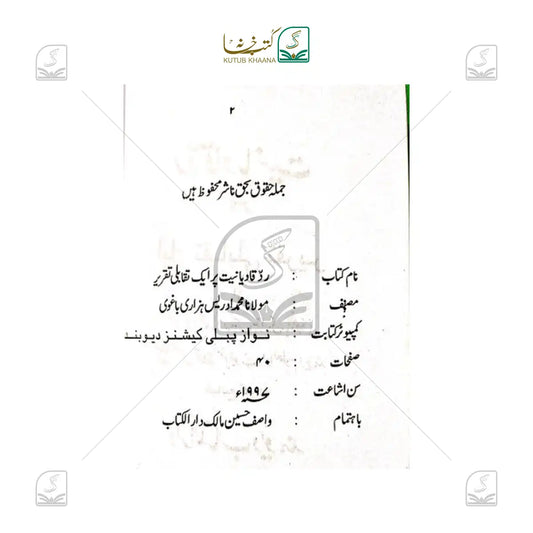 کتب خانہ
KUTUB KHAANA
۲
جملہ حقوق بحق ناشر محفوظ ہیں
نام کتاب : ردّ قادیانیت پر ایک تقابلی تقریر
مصنف : مولانا محمد ادریس ہزاری باغوی
کمپیوٹر کتابت : نواز پبلی کیشنز دیوبند
صفحات : ۴۰
سن اشاعت : ۱۹۹۷ء
باہتمام : واصف حسین مالک دار الکتاب